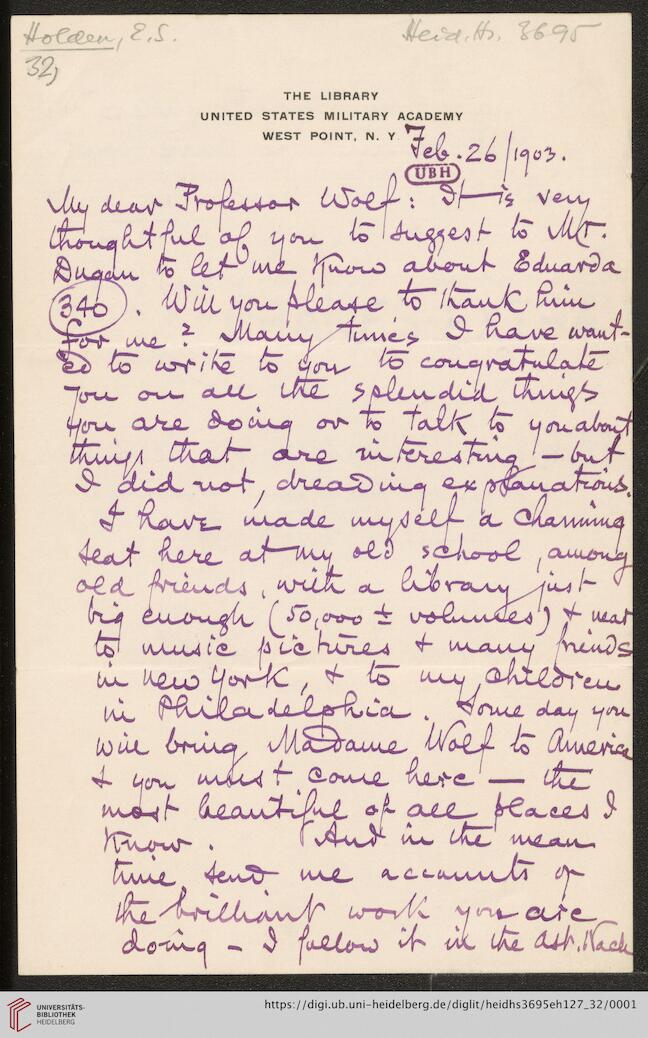 Holden, E.S.
Heid. Hs. 3695
32,
THE LIBRARY
UNITED STATES MILITARY ACADEMY
WEST POINT, N. Y.
Feb. 26/1903.
UBH
My dear Professor Wolf: It is very
thoughtful of you to suggest to Mr.
Dugan to let me know about Eduarda
(340). Will you please to thank him
for me? Many times I have want-
ed to write to you to congratulate
you on all the splendid things
you are doing or to talk to you about
things that are interesting — but
I did not, dreading explanations.
I have made myself a charming
seat here at my old school, among
old friends, with a library just
big enough (50,000 ± volumes) & near
to music pictures & many friends
in New York, & to my children
in Philadelphia. Some day you
will bring Madame Wolf to America
& you must come here — the
most beautiful of all places I
know. And in the mean
time send me accounts of
the brilliant work you are
doing – I follow it in the Ast. Nach
UNIVERSITÄTS-
BIBLIOTHEK
HEIDELBERG
https://digi.ub.uni-heidelberg.de/diglit/heidhs3695eh127_32/0001